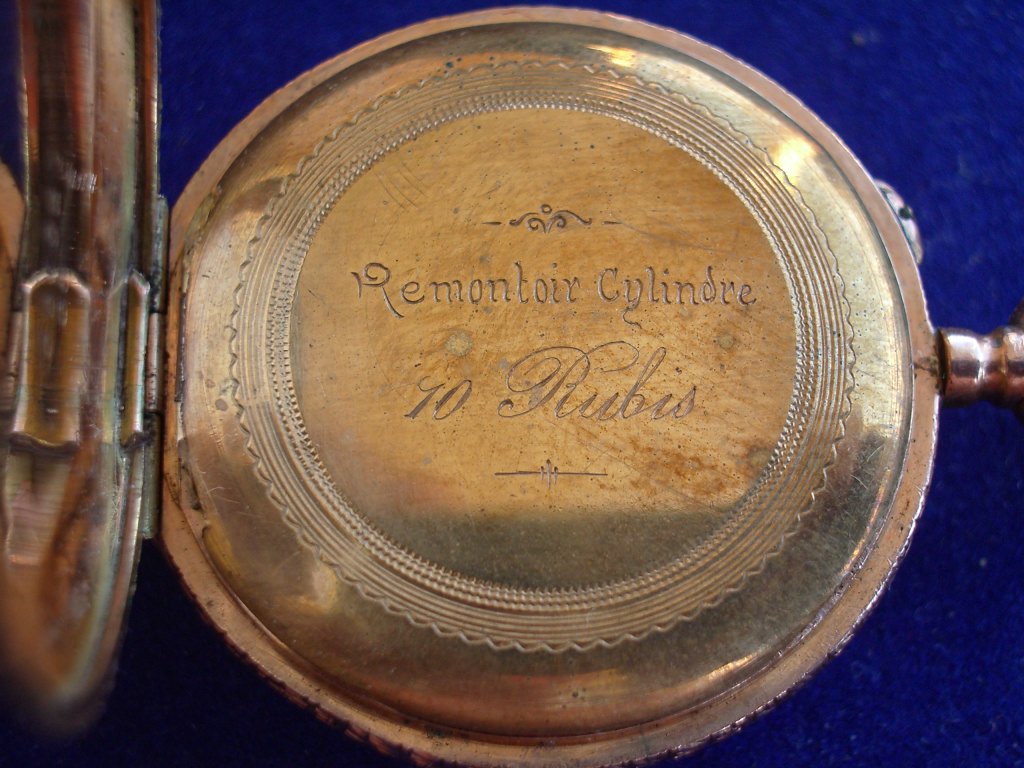 Remontoir Cylindre
10 Rubis